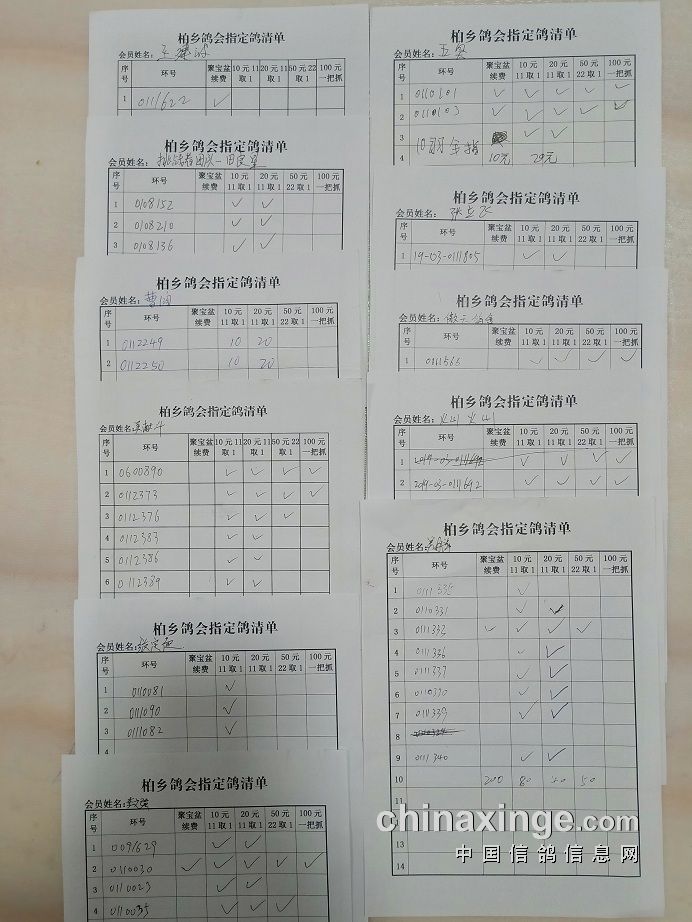 柏乡鸽会指定鸽清单
会员姓名:
序号 环号 聚宝盆续费 10元11取1 20元11取1 50元22取1 100元一把抓
1 0111622 ✓
柏乡鸽会指定鸽清单
会员姓名:
序号 环号 聚宝盆续费 10元11取1 20元11取1 50元22取1 100元一把抓
1 0108152 ✓ ✓
2 0108210 ✓ ✓
3 0108136 ✓ ✓
柏乡鸽会指定鸽清单
会员姓名:
序号 环号 聚宝盆续费 10元11取1 20元11取1 50元22取1 100元一把抓
1 0112249 10 20
2 0112250 10 20
柏乡鸽会指定鸽清单
会员姓名:
序号 环号 聚宝盆续费 10元11取1 20元11取1 50元22取1 100元一把抓
1 0600890 ✓ ✓ ✓ ✓
2 0112373 ✓ ✓ ✓ ✓
3 0112376 ✓ ✓ ✓
4 0112383 ✓ ✓
5 0112386 ✓ ✓
6 0112389 ✓ ✓
柏乡鸽会指定鸽清单
会员姓名:
序号 环号 聚宝盆续费 10元11取1 20元11取1 50元22取1 100元一把抓
1 0110081 ✓
2 0111090 ✓
3 0111082 ✓
4
柏乡鸽会指定鸽清单
会员姓名:
序号 环号 聚宝盆续费 10元11取1 20元11取1 50元22取1 100元一把抓
1 0091629 ✓ ✓
2 0110030 ✓ ✓ ✓ ✓ ✓
3 0110023 ✓ ✓
4 0110035 ✓ ✓ ✓
柏乡鸽会指定鸽清单
会员姓名:
序号 环号 聚宝盆续费 10元11取1 20元11取1 50元22取1 100元一把抓
1 0110101 ✓ ✓ ✓ ✓ ✓
2 0110103 ✓ ✓ ✓ ✓ ✓
3 ✓ ✓
4 10羽全指 10元 20元
柏乡鸽会指定鸽清单
会员姓名:
序号 环号 聚宝盆续费 10元11取1 20元11取1 50元22取1 100元一把抓
1 19-03-0111805 ✓ ✓
柏乡鸽会指定鸽清单
会员姓名:
序号 环号 聚宝盆续费 10元11取1 20元11取1 50元22取1 100元一把抓
1 0111566 ✓ ✓ ✓ ✓
柏乡鸽会指定鸽清单
会员姓名: 火山火山
序号 环号 聚宝盆续费 10元11取1 20元11取1 50元22取1 100元一把抓
1 ✓ ✓ ✓ ✓
2 2019-03-0111692 ✓ ✓ ✓ ✓
柏乡鸽会指定鸽清单
会员姓名:
序号 环号 聚宝盆续费 10元11取1 20元11取1 50元22取1 100元一把抓
1 0111335 ✓
2 0110331 ✓ ✓
3 0111332 ✓ ✓ ✓ ✓
4 0111336 ✓ ✓
5 0111337 ✓ ✓
6 0110330 ✓ ✓
7 0111339 ✓ ✓
8
9 0111340 ✓ ✓
10 200 80 50
11
12
13
14
chinaxinge.com
中国信鸽信息网